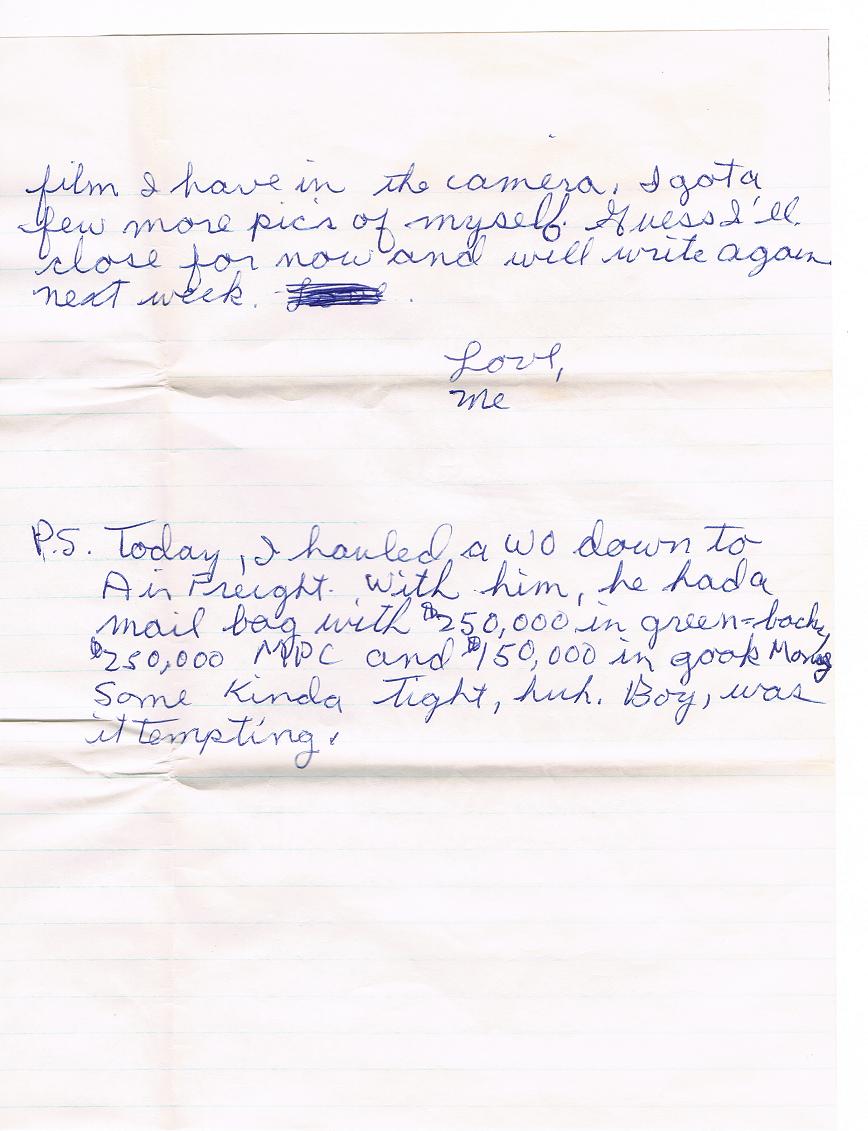 film I have in the camera. I got a
few more pic's of myself. Guess I'll
close for now and will write again
next week.
Love,
Me
P.S. Today, I hauled a WO down to
Air Freight. With him, he had a
mail bag with $250,000 in green-backs,
$250,000 MPC and $150,000 in gook Money
Some Kinda Tight, huh. Boy, was
it tempting.